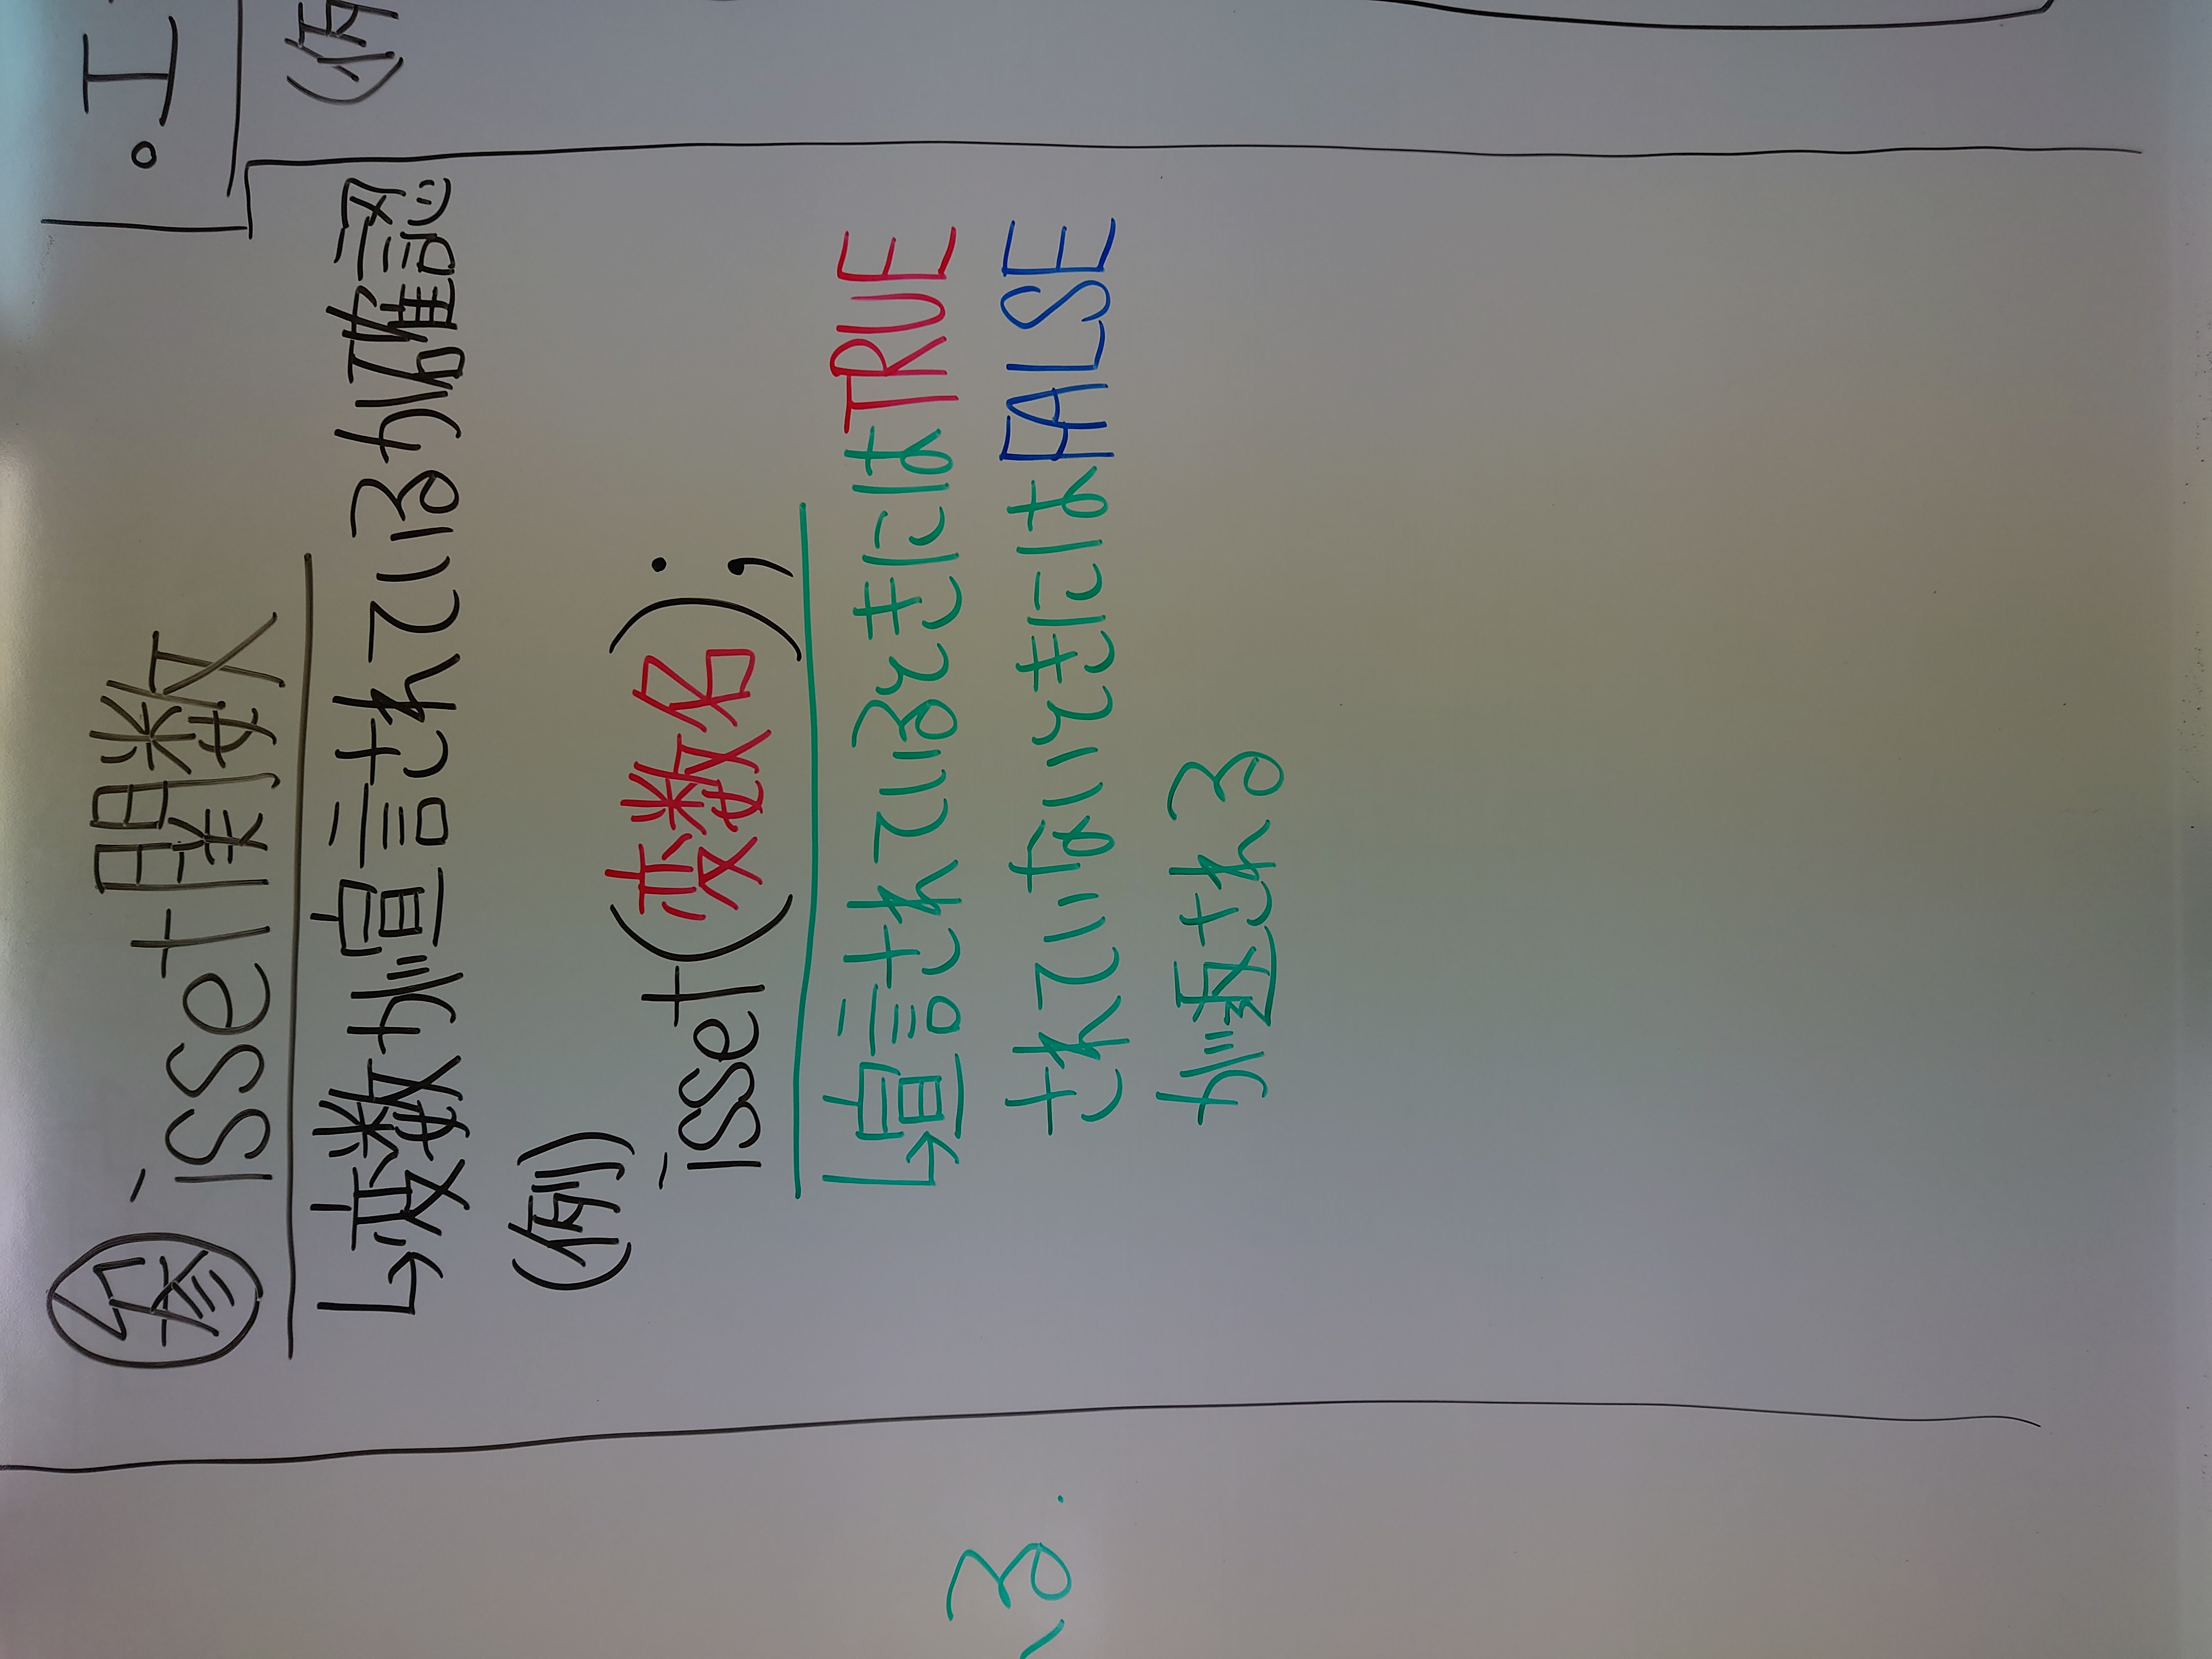 参 isset関数
↳変数が宣言されているか確認
(例)
isset(変数名);
↳宣言されているときにはTRUE
されていないときにはFALSE
が返される
る.
・エ
(例